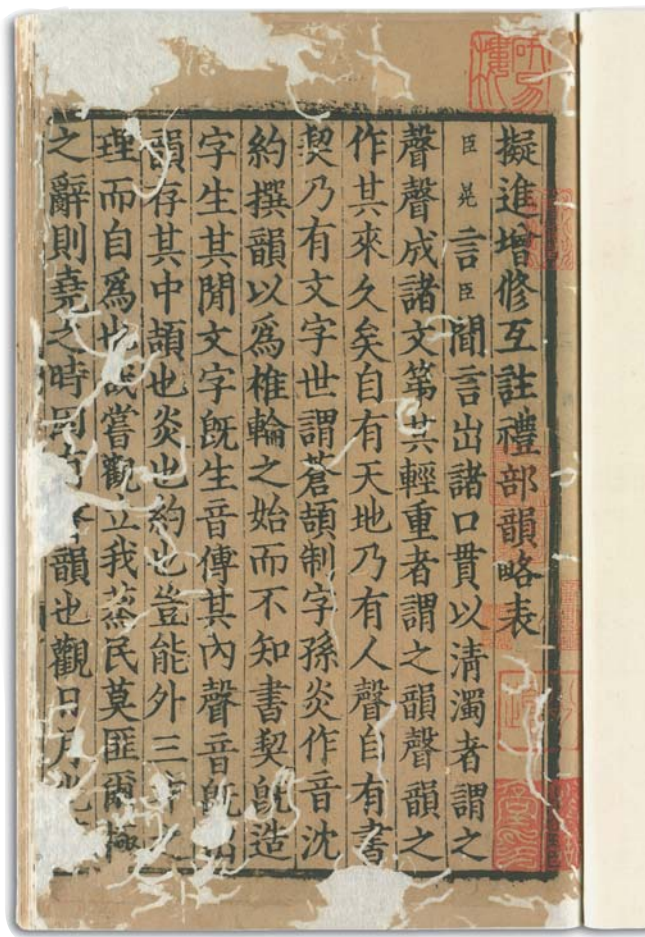 擬進增修互註禮部韻略表
臣晃言臣聞言出諸口貫以清濁者謂之
聲聲成諸文第其輕重者謂之韻聲韻之
作其來久矣自有天地乃有人聲自有書
契乃有文字世謂蒼頡制字孫炎作音沈
約撰韻以爲椎輪之始而不知書契旣造
字生其閒文字旣生音傳其內聲音旣出
韻存其中頡也炎也約也豈能外三才之
理而自爲也哉嘗觀立我蒸民莫匪爾極
之辭則堯之時固有韻也觀日月